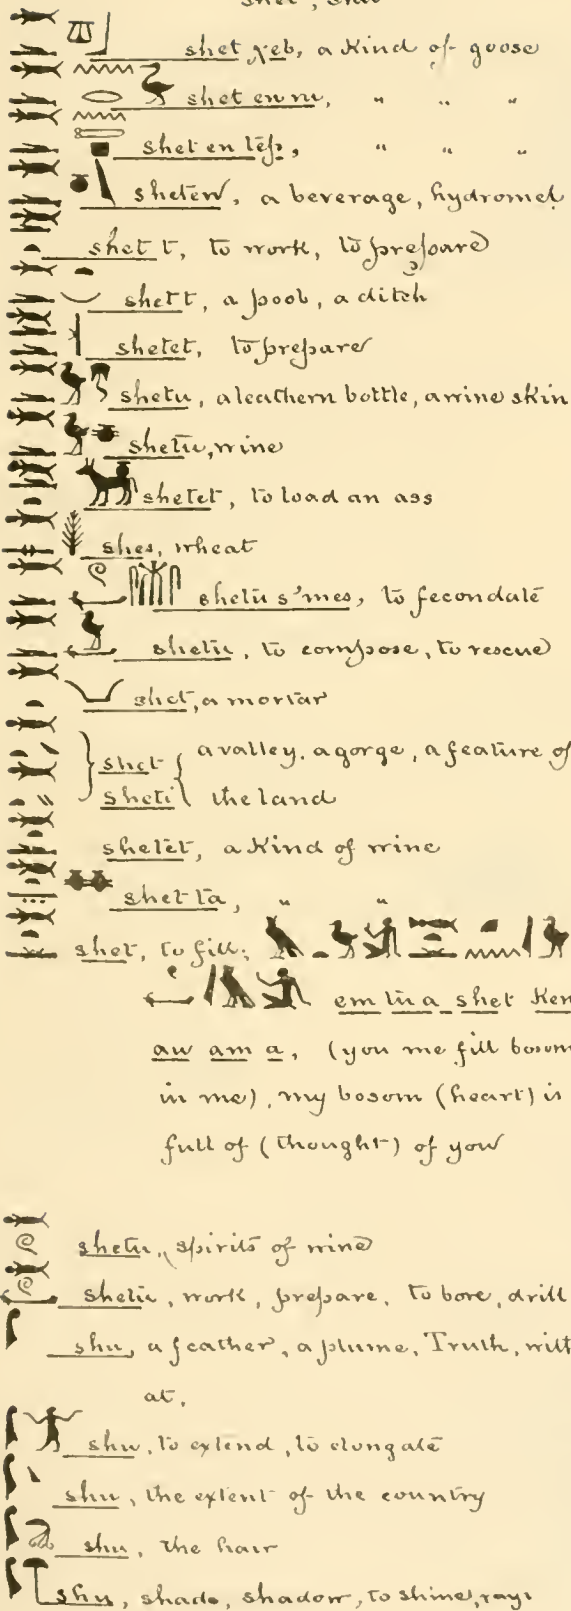 shet χeb, a kind of goose
shet en nu, " " "
shet en tep, " " "
sheten, a beverage, hydromel
shet t, to work, to prepare
shet t, a pool, a ditch
shetet, to prepare
shetu, a leathern bottle, a wine skin
shetu, wine
shetet, to load an ass
shes, wheat
shetu s'mes, to fecondate
shetu, to compose, to rescue
shet, a mortar
shet a valley, a gorge, a feature of
sheti the land
shetet, a kind of wine
shet ta, " "
shet, to fill;
em tu a shet Ken
au am a, (you me fill bosom
in me), my bosom (heart) is
full of (thought) of you
shetu, spirits of wine
shetu, work, prepare, to bore, drill
shu, a feather, a plume, Truth, with
at,
shu, to extend, to elongate
shu, the extent of the country
shu, the hair
shu, shade, shadow, to shine, rays